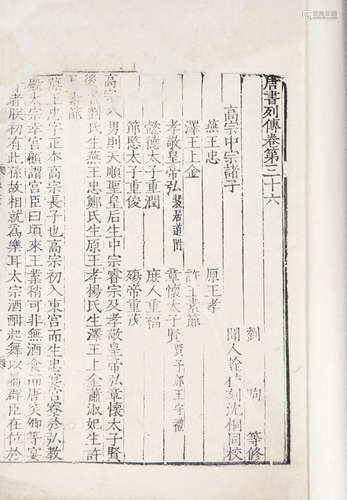 唐書列傳卷第三十六
劉 昫 等修
聞人詮校刻沈桐同校
高宗中宗諸子
燕王忠 原王孝
澤王上金 許王素節
孝敬皇帝弘 裴居道附 章懷太子賢 賢子邠王守禮
懿德太子重潤 庶人重福
節愍太子重俊 殤帝重茂
高宗八男則天順聖皇后生中宗睿宗及孝敬皇帝弘章懷太子賢
後宮劉氏生燕王忠鄭氏生原王孝楊氏生澤王上金蕭淑妃生許
王素節
燕王忠字正本高宗長子也高宗初入東宮而生忠宴宮寮於弘教
殿太宗幸宮顧謂宮臣曰頃來王業稍可非無酒食而唐突卿等宴
會者朕初有此孫故相就為樂耳太宗酒酣起舞以屬群臣在位於